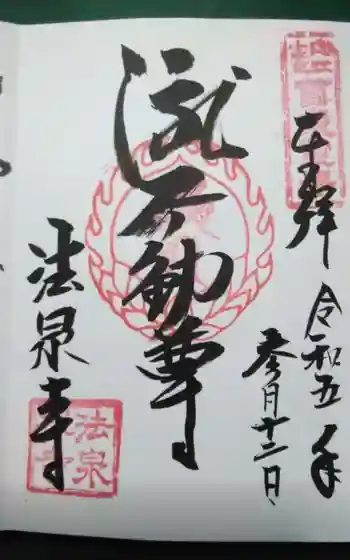 奉拝
令和五年
参月十二日
滝不動尊
法泉寺
法泉